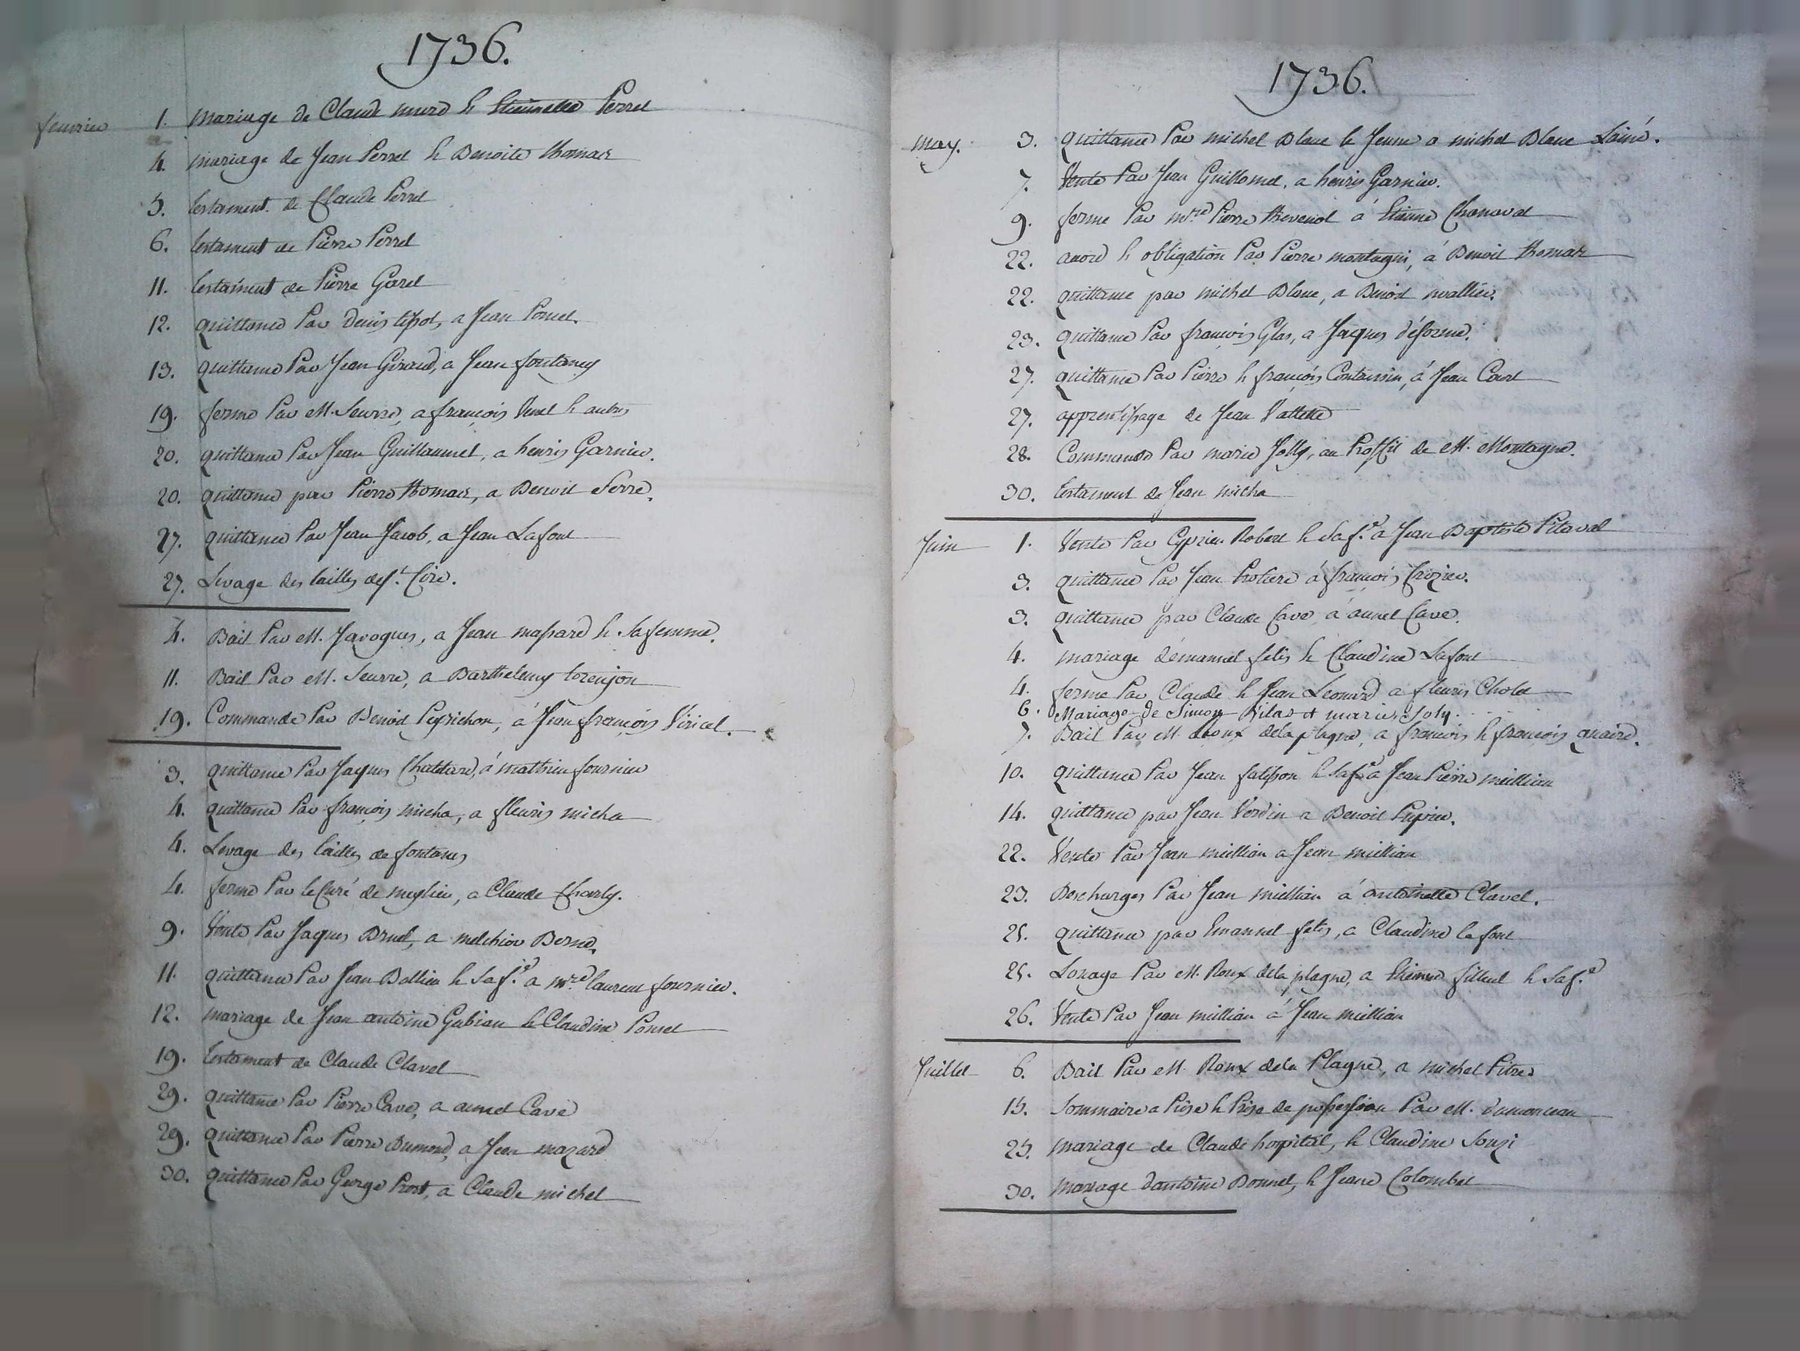 1736.
fevrier 1. mariage de Claude murd & Etiennette Perret
4. mariage de Jean Perret & Benoite thomas
5. testament de Claude Perret
6. testament de Pierre Perret
11. testament de Pierre Garel
12. quittance Par denis tissot, a Jean Poncet.
13. quittance Par Jean Giraud, a Jean fontaney
19. ferme Par M. Seurre, a francois Venet & autres
20. quittance Par Jean Guillaumet, a henris Garnier.
20. quittance par Pierre thomas, a Benoit Serre.
27. quittance Par Jean Jacob, a Jean Lafont
27. Levage des tailles de St. Cire.
4. Bail Par M. Javogues, a Jean massard & Sa femme.
11. Bail Par M. Seurre, a Barthelemy
19. Commande Par Benoit Peyrichon, à Jean françois Véricel.
3. quittance Par Jaques Chattard, à mathieu fournier
4. quittance Par françois micha, a fleuris micha
4. Levage des tailles de fontanes
4. ferme Par le Curé de meylieu, a Claude Charly.
9. Vente Par Jaques Brul, a melchior Berne.
11. quittance Par Jean Ballien & Sa fe. a mtre laurent fournier.
12. mariage de Jean antoine Gubian & Claudine Poncet
19. testament de Claude Clavel
29. quittance Par Pierre Cave, a aimet Cave
29. quittance Par Pierre Dumond, a Jean mazard
30. quittance Par George Prost, a Claude michel
1736.
may. 3. quittance Par michel Blanc le Jeune a michel Blanc Lainé.
7. Vente Par Jean Guillomet, a henris Garnier.
9. ferme Par mtre Pierre thevenot à Etienne Chanaval
22. acord & obligation Par Pierre montagni, à Benoit thomas
22. quittance par michel Blanc, a Benoit
23. quittance Par françois Glas, a Jaques déforme.
27. quittance Par Pierre & françois Coutaissin, à Jean Court
27. apprentissage de Jean Vallette
28. Commande Par marie Jolly, au Proffit de M. Montagne.
30. testament de Jean micha
Juin 1. Vente Par Cyprien Robert & Sa fe. a Jean Baptiste Pitaval
3. quittance Par Jean Protiere à françois Crozier.
3. quittance par Claude Cave à aimet Cave.
4. mariage démanuel felis & Claudine Lafont
4. ferme Par Claude & Jean Leonard a fleuris Cholet
6. Mariage de Simon Pilas et marie Joly.
7. Bail Par M. Roux dela plagne, a françois & françois
10. quittance Par Jean & Sa fe. a Jean Pierre million
14. quittance par Jean Verdin a Benoit
22. Vente Par Jean million a Jean million
23. Descharges Par Jean million à antoinette Clavel.
25. quittance par Emanuel felis, a Claudine lafont
25. Lonage Par M. Roux dela plagne, a Etienne filleul & Sa fe.
26. Vente Par Jean million à Jean million
Juillet 6. Bail Par M. Roux dela Plagne, a michel Pitre
15. Sommaire a Prise & Prise de possession Par M. dumonceau
25. mariage de Claude hospital, & Claudine Souzi
30. mariage dantoine Bonnet, & Jeane Colombet